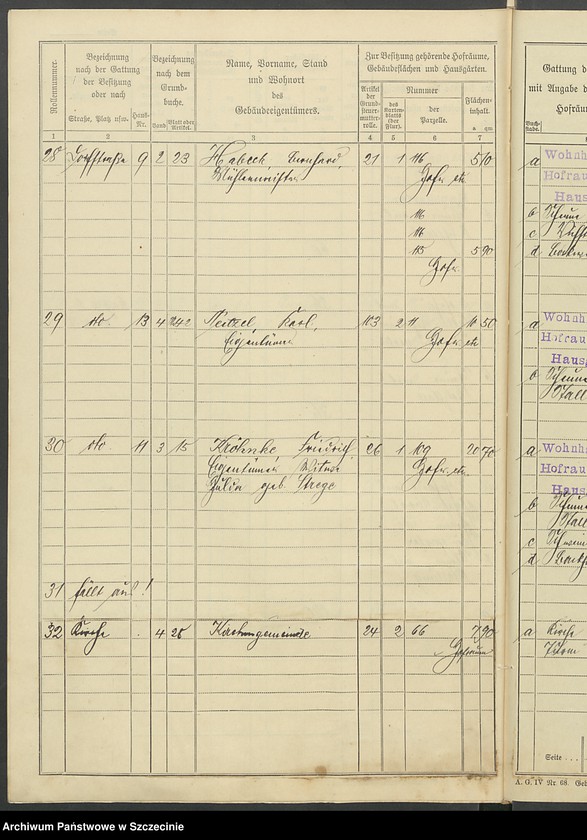 Rollennummer.
Bezeichnung
nach der Gattung
der Besitzung
oder nach
Straße, Platz usw.
Haus-
Nr.
Bezeichnung
nach dem
Grund-
buche.
Band
Blatt oder
Artikel.
Name, Vorname, Stand
und Wohnort
des
Gebäudeeigentümers.
Zur Besitzung gehörende Hofräume,
Gebäudeflächen und Hausgärten.
Artikel
der
Grund-
steuer-
mutter-
rolle.
Nummer
des
Karten-
blatts
(der
Flur).
der
Parzelle.
Flächen-
inhalt.
a qm
1 2 3 4 5 6 7
28 Dorfstraße 9 2 23 Habeck Bernhard, 21 1 116 5 10
Mühlenmeister Hofr. etc
116
116
115 5 90
Hofr.
29 dto 13 4 Karl, 103 2 11 10 50
Eigentümer Hofr. etc
30 dto 11 3 15 Kröhnke Friedrich, 26 1 109 20 70
Eigentümer Witwe Hofr. etc.
Julia geb. Strege
31 fällt aus!
32 Kirche 4 28 Kirchengemeinde 24 2 66 7 90
Hofraum
Gattung d
mit Angabe d
Hofräu
Buch-
stabe.
a Wohnh
Hofrau
Haus
b Scheune
c
d
a Wohnh
Hofrau
Haus
b Scheune
Stall
a Wohnh
Hofrau
Haus
b Scheune
Stall
c Schwein
d
a Kirche
Seite . . .
A. G. IV Nr. 68. Geb
Archiwum Państwowe w Szczecinie